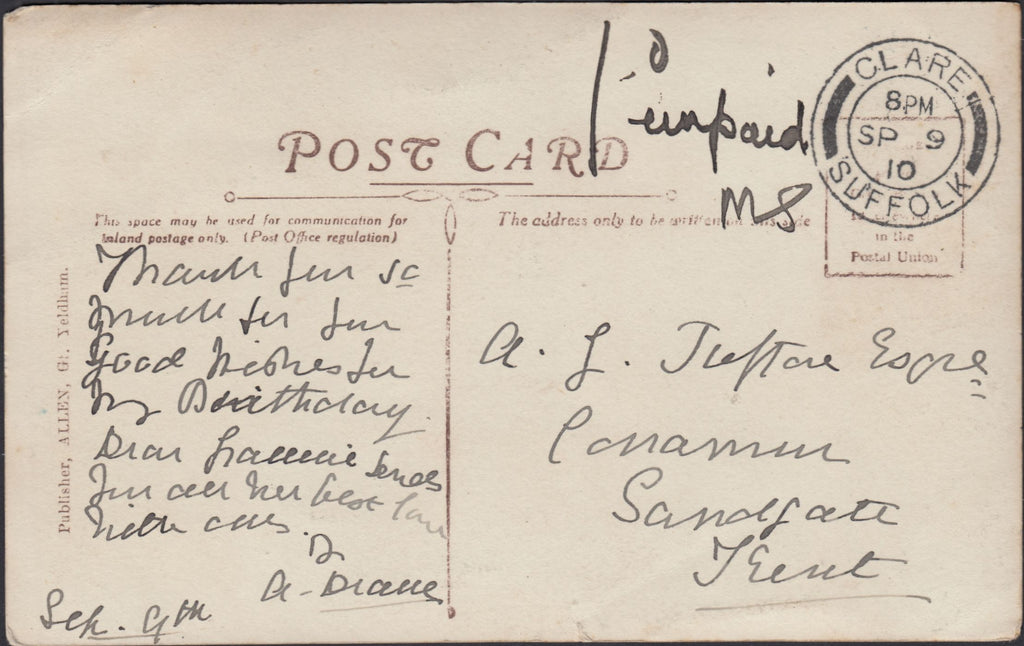 1D
unpaid
MS
CLARE
8PM
SP 9
10
SUFFOLK
POST CARD
This space may be used for communication for
inland postage only. (Post Office regulation)
The address only to be written on this side
in the
Postal Union
Publisher, ALLEN, Gt. Yeldham.
Thank you so
much for your
Good Wishes for
my Birthday.
Dear Grannie sends
you all her best love
with ours.
A.
Sandgate
Kent
Sep. 9th